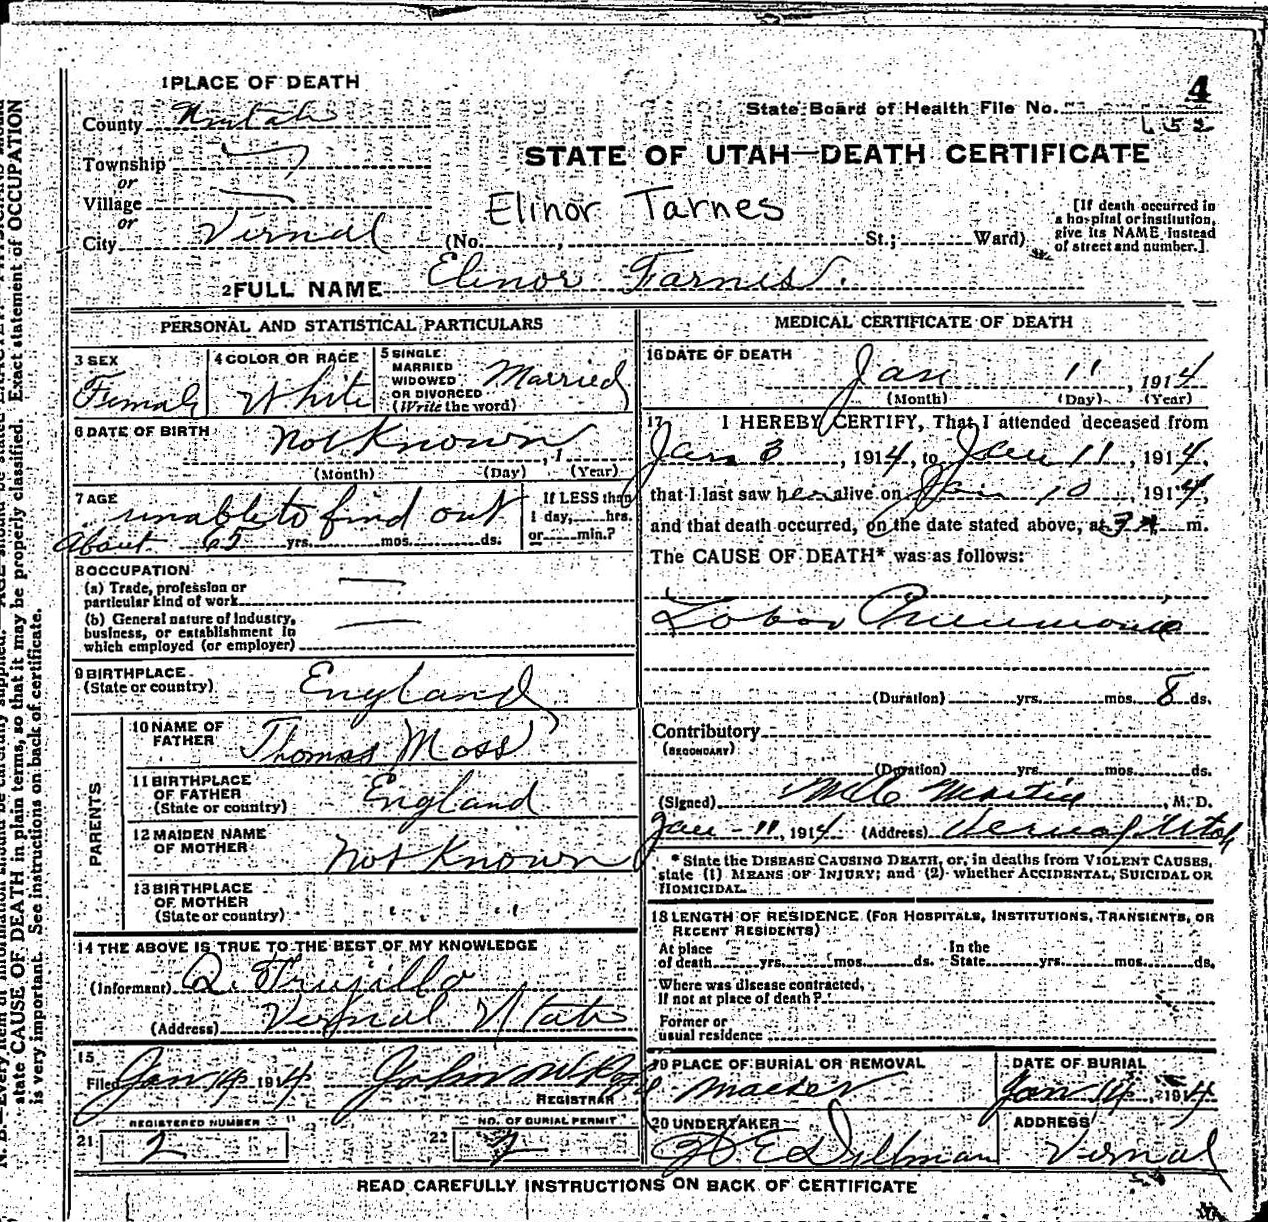 1 PLACE OF DEATH
County Uintah
Township
or
Village
or
City Vernal
4
State Board of Health File No.
652
STATE OF UTAH—DEATH CERTIFICATE
Elinor Tarnes
(No. , St.; Ward)
[If death occurred in
a hospital or institution,
give its NAME instead
of street and number.]
2 FULL NAME Elinor Farnes.
PERSONAL AND STATISTICAL PARTICULARS
3 SEX
Female
4 COLOR OR RACE
White
5 SINGLE
MARRIED
WIDOWED
OR DIVORCED
(Write the word)
Married
6 DATE OF BIRTH
Not Known , 1
(Month) (Day) (Year)
7 AGE
unable to find out
About 65 yrs. mos. ds.
If LESS than
1 day, hrs.
or min.?
8 OCCUPATION
(a) Trade, profession or
particular kind of work
(b) General nature of industry,
business, or establishment in
which employed (or employer)
9 BIRTHPLACE
(State or country)
England
PARENTS
10 NAME OF
FATHER
Thomas Moss
11 BIRTHPLACE
OF FATHER
(State or country)
England
12 MAIDEN NAME
OF MOTHER
Not Known
13 BIRTHPLACE
OF MOTHER
(State or country)
" "
14 THE ABOVE IS TRUE TO THE BEST OF MY KNOWLEDGE
(Informant) Q. Trujillo
(Address) Vernal Utah
15
Filed Jan 14, 1914
REGISTRAR
REGISTERED NUMBER
21 2
NO. OF BURIAL PERMIT
22 2
MEDICAL CERTIFICATE OF DEATH
16 DATE OF DEATH
Jan 11, 1914
(Month) (Day) (Year)
17 I HEREBY CERTIFY, That I attended deceased from
Jan 3, 1914, to Jan 11, 1914,
that I last saw her alive on Jan 10, 1914,
and that death occurred, on the date stated above, at 3 A m.
The CAUSE OF DEATH* was as follows:
Lobar Pneumonia
(Duration) yrs. mos. 8 ds.
Contributory
(SECONDARY)
(Duration) yrs. mos. ds.
(Signed) Martin, M. D.
Jan - 11, 1914 (Address) Vernal, Utah
* State the DISEASE CAUSING DEATH, or, in deaths from VIOLENT CAUSES,
state (1) MEANS OF INJURY; and (2) whether ACCIDENTAL, SUICIDAL OR
HOMICIDAL.
18 LENGTH OF RESIDENCE (FOR HOSPITALS, INSTITUTIONS, TRANSIENTS, OR
RECENT RESIDENTS)
At place
of death yrs. mos. ds.
In the
State yrs. mos. ds.
Where was disease contracted,
If not at place of death?
Former or
usual residence
19 PLACE OF BURIAL OR REMOVAL
Maeser
DATE OF BURIAL
Jan 14, 1914
20 UNDERTAKER
Dillman
ADDRESS
Vernal
READ CAREFULLY INSTRUCTIONS ON BACK OF CERTIFICATE
state CAUSE OF DEATH in plain terms, so that it may be properly classified. Exact statement of OCCUPATION
is very important. See instructions on back of certificate.